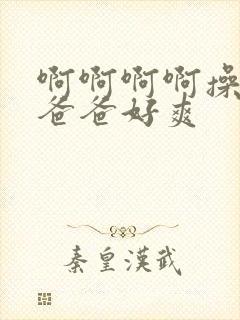 啊啊啊啊操
爸爸好爽
秦皇漢武